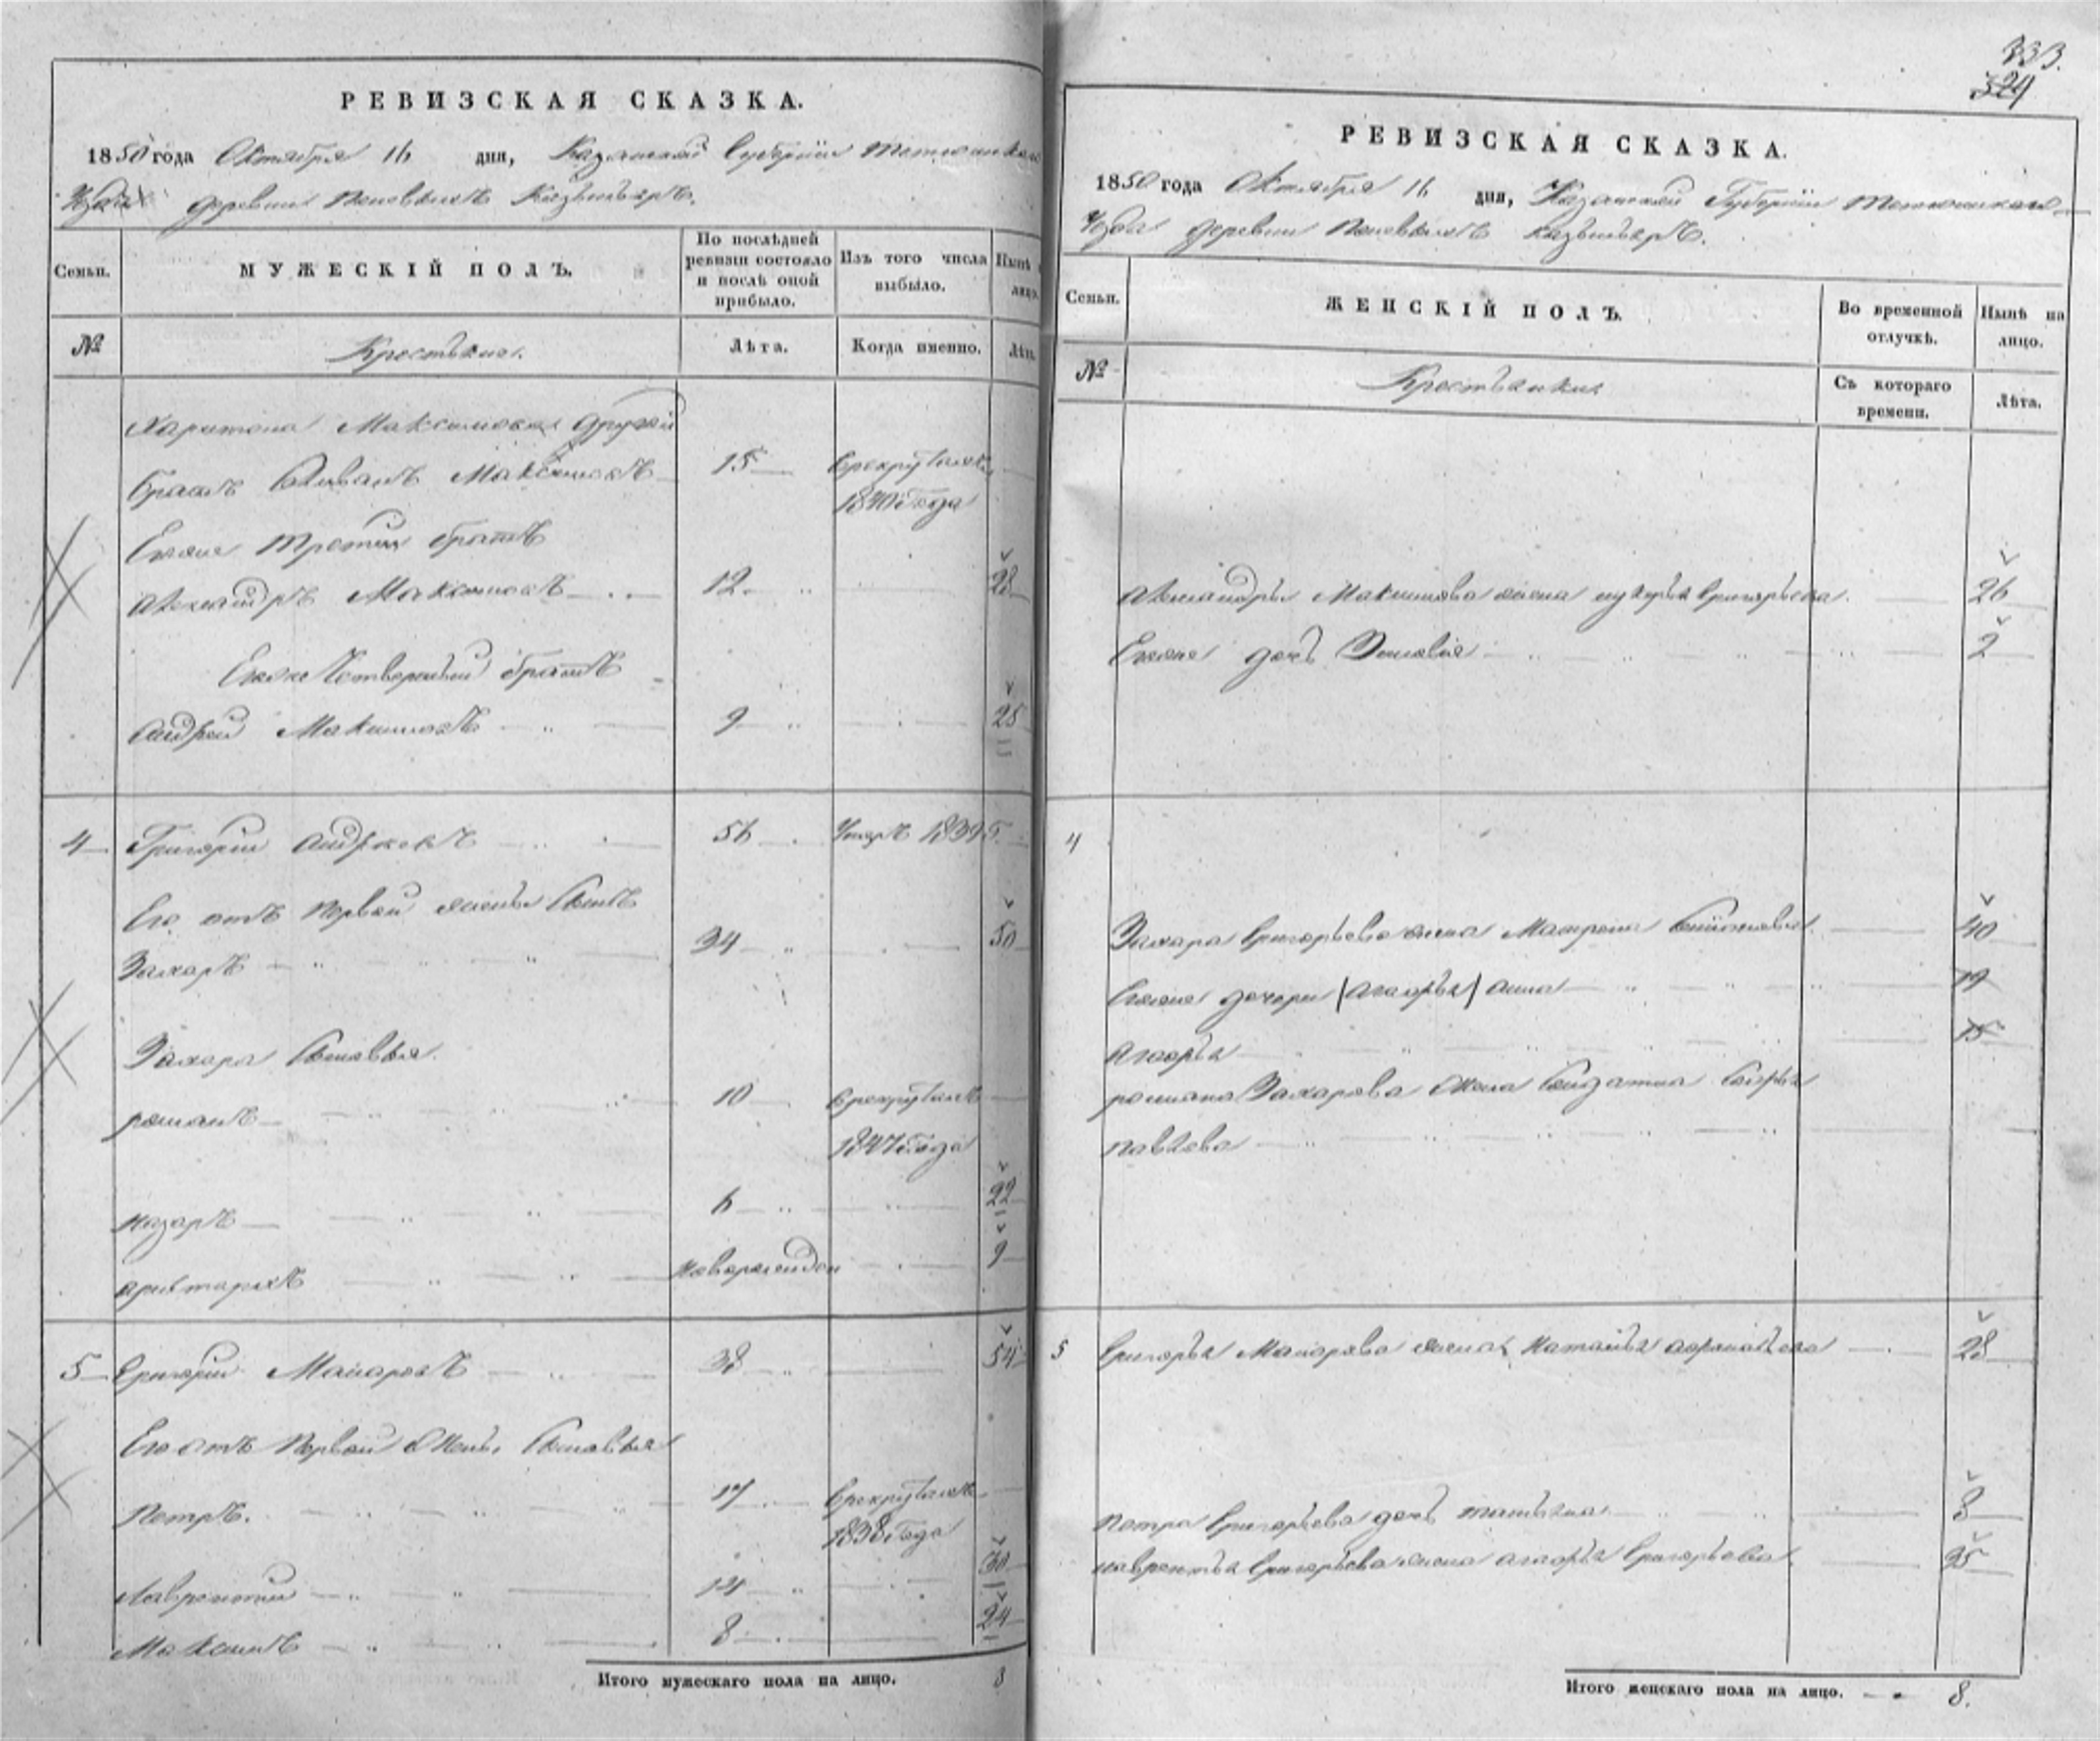 РЕВИЗСКАЯ СКАЗКА.
1850 года Октября 16 дня, Казанской Губернии Тетюшскаго
Уезда деревни
Семьи. МУЖЕСКІЙ ПОЛЪ. По послѣдней ревизіи состояло и послѣ оной прибыло. Изъ того числа выбыло. Нынѣ лицо.
№ Крестьяне. Лѣта. Когда именно. Лѣта
Харитона Максимова другой
братъ Максимовъ 15 в рекруты
1840 года
Егоже третий братъ
Александръ Максимовъ 12 28
Егоже четвертый братъ
Андрей Максимовъ 9 25
4 Григорий Андреевъ 56 Умеръ 1839
Его отъ первой жены сынъ
Захаръ 34 50
Захара сыновья
романъ 10 в рекруты
1847 года
назаръ 6 22
аристархъ новорожден 9
5 Григорий Макаровъ 38 54
Его отъ первой жены сыновья
Петръ. 17 в рекруты
1838 года
Лаврентий 14 30
Максимъ 8 24
Итого мужескаго пола на лицо. 8
333.
324
РЕВИЗСКАЯ СКАЗКА.
1850 года Октября 16 дня, Казанской Губернии Тетюшскаго
Уезда деревни
Семьи. ЖЕНСКІЙ ПОЛЪ. Во временной отлучкѣ. Нынѣ на лицо.
№ Крестьянки Съ котораго времени. Лѣта.
Александры Максимова жена Григорьева 26
Егоже дочь Зиновия 2
4
Захара Григорьева жена Матрена 40
Егоже дочери (Агафья) Анна 19
Агафья 15
романа Захарова жена Солдатка
павлова
5 Григорья Макарова жена Наталья 28
петра Григорьева дочь татьяна 8
лаврентья Григорьева жена агафья Григорьева 25
Итого женскаго пола на лицо. 8.